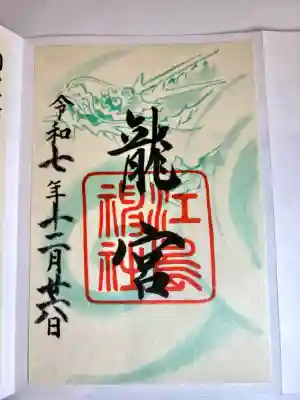 龍宮
江島
神社
令和七年十二月廿六日